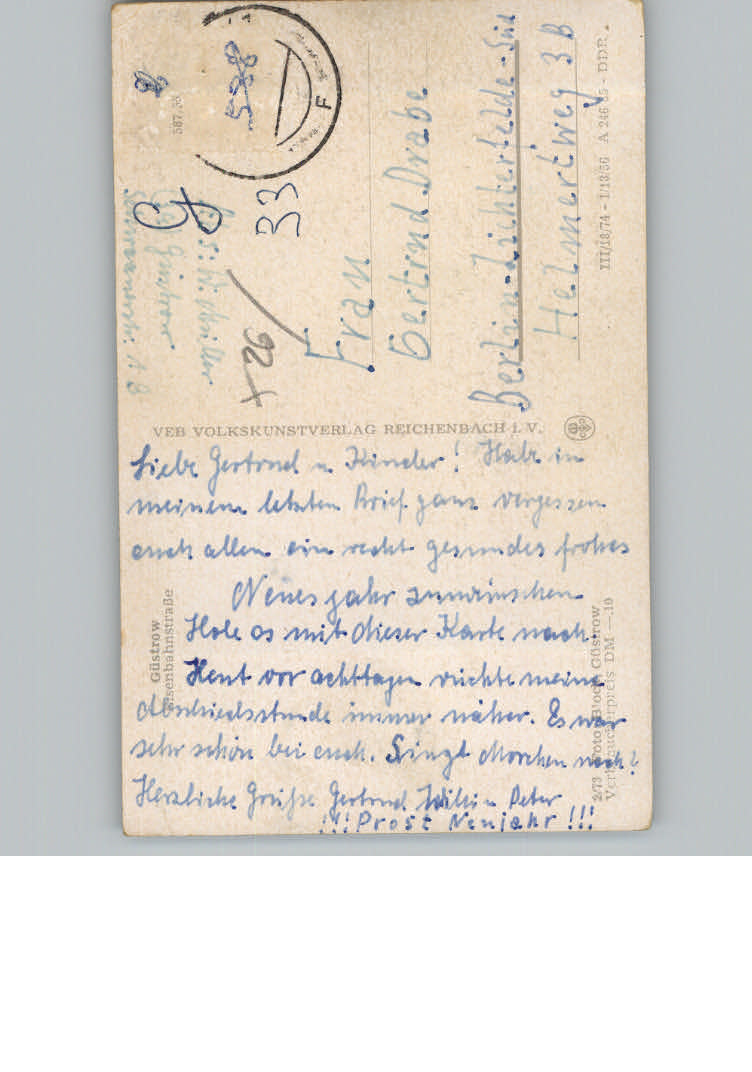 Liebe Gertrud u. Kinder! Habe in
meinem letzten Brief ganz vergessen
euch allen ein recht gesundes frohes
Neues Jahr zuwünschen
Hole es mit dieser Karte nach.
Heut vor achttagen rückte meine
Abschiedsstunde immer näher. Es war
sehr schön bei euch. Singt noch?
Herzliche Grüße Gertrud Peter
!!! Prost Neujahr !!!
VEB VOLKSKUNSTVERLAG REICHENBACH i. V.
Güstrow
Eisenbahnstraße
2/73 Foto: Bloch, Güstrow
Verbraucherpreis DM —.10
Güstrow
33
+ 26
Frau
Gertrud Drabe
Berlin-Lichterfelde-Süd
Helmertweg 3B
III/18/74 - 1/13/56 A 246 55 - DDR
587
588
F